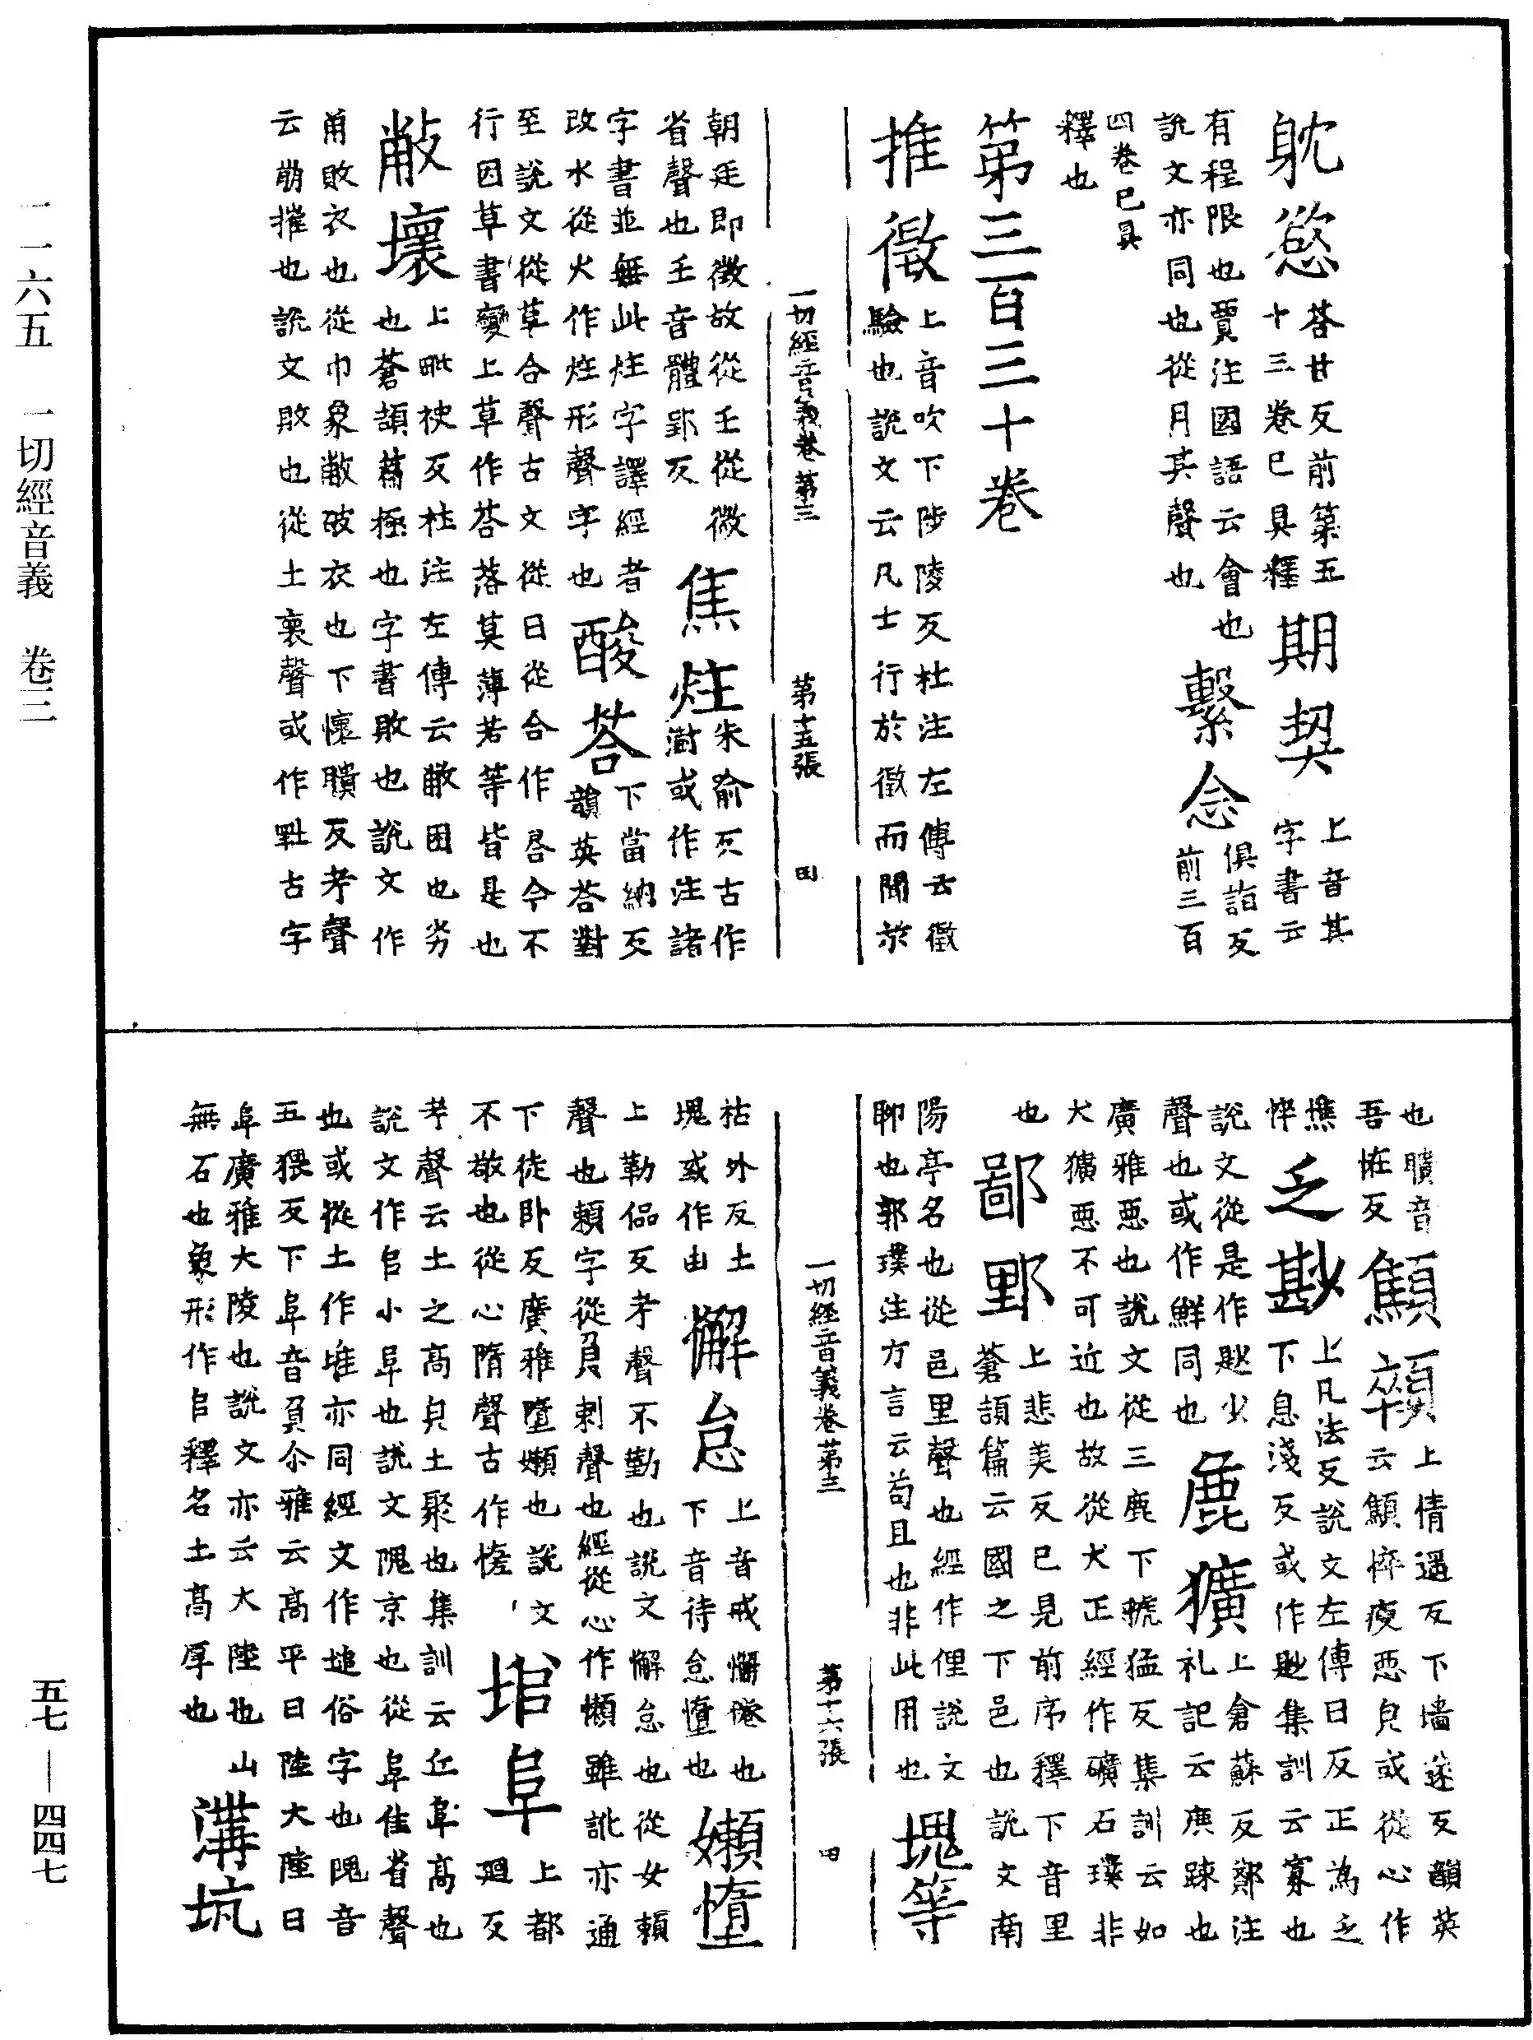 躭慾 荅甘反前第五
十三卷已具釋
期契 上音其
字書云
有程限也賈注國語云會也
說文亦同也從月其聲也
繫念 俱詣反
前三百
四卷已具
釋也
第三百三十卷
推徵 上音吹下陟陵反杜注左傳云徵
驗也說文云凡士行於徵而聞於
一切經音義卷第三 第十五張 田
朝廷即徵故從壬從微
省聲也壬音體郢反
焦炷 朱俞反古作
澍或作注諸
字書並無此炷字譯經者
改水從火作炷形聲字也
酸荅 下當納反
韻英荅對
至說文從草合聲古文從日從合作荅今不
行因草書變上草作荅落莫薄若等皆是也
敝壞 上毗袂反杜注左傳云敝困也劣
也蒼頡篇極也字書敗也說文作
㡀敗衣也從巾象敝破衣也下懷聵反考聲
云崩摧也說文敗也從土褱聲或作𡌘古字
也聵音
吾恠反
顦顇 上情遥反下墙遂反韻英
云顦悴瘦惡皃或從心作
憔
悴
乏尠 上凡法反說文左傳曰反正為乏
下息淺反或作尟集訓云寡也
說文從是作尟少
聲也或作鮮同也
麁獷 上倉蘇反鄭注
礼記云麁踈也
廣雅惡也說文從三鹿下虢猛反集訓云如
犬獷惡不可近也故從犬正經作礦石璞非
也
鄙野 上悲美反已見前序釋下音里
蒼頡篇云國之下邑也說文南
陽亭名也從邑里聲也經作俚說文
聊也郭璞注方言云苟且也非此用也
塊等
一切經音義卷第三 第十六張 田
枯外反土
塊或作凷
懈怠 上音戒懈倦也
下音待怠憧也
嬾憧
上勒侃反考聲不勤也說文懈怠也從女賴
聲也賴字從負剌聲也經從心作懶雖訛亦通
下徒卧反廣雅墮嬾也說文
不敬也從心隋聲古作憜
堆阜 上都
廻反
考聲云土之高皃土聚也集訓云丘阜高也
說文作𠂤小阜也說文隗京也從阜隹省聲
也或從土作堆亦同經文作塠俗字也隗音
五猥反下阜音負尒雅云高平曰陸大陸曰
阜廣雅大陵也說文亦云大陸也山
無石也象形作𠂤釋名土高厚也
溝坑
一一六五 一切經音義 卷三
五七—四四七